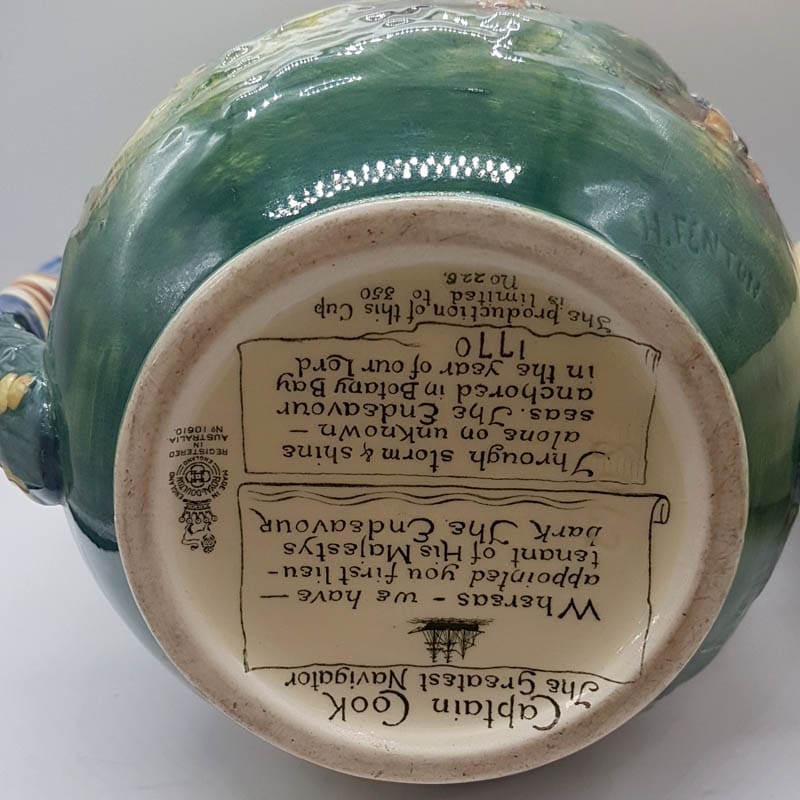 Captain Cook
The Greatest Navigator
Whereas - we have -
appointed you first lieu-
tenant of His Majestys
bark The Endeavour
Through storm & shine
alone on unknown -
seas. The Endeavour
anchored in Botany Bay
in the year of our Lord
1770
The production of this Cup
is limited to 350
No 226.
MADE IN
ENGLAND
ROYAL DOULTON
ENGLAND
REGISTERED
IN
AUSTRALIA
No 10610.